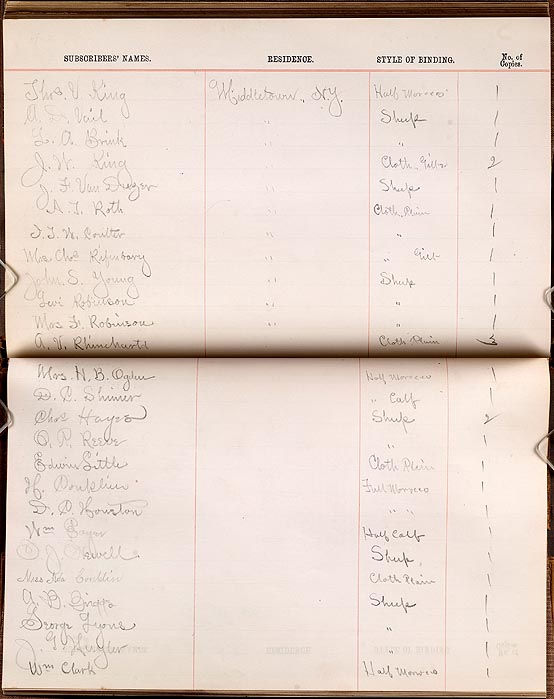 SUBSCRIBERS' NAMES. RESIDENCE. STYLE OF BINDING. No. of Copies.
Thos. V. King Middletown, N.Y. Half Morocco 1
A. D. Vail " Sheep 1
L. A. Brink " " 1
J. W. King " Cloth Gilt 2
J. F. Van " Sheep 1
A. I. Roth " Cloth Plain 1
J. W. Coulter " " 1
Mrs. Chas " " Gilt 1
John S. Young " Sheep 1
Levi Robinson " " 1
Mrs F. Robinson " " 1
A. V. Rhinehart Cloth Plain 3
Mrs. H. B. Ogden Half Morocco 1
D. C. Shimer " Calf 1
Chas Hayes Sheep 2
O. P. Reeve " 1
Edwin Little Cloth Plain 1
H. Full Morocco 1
D. D. Houston " " 1
Wm Half Calf 1
D. J. Newell Sheep 1
Miss Ada Conklin Cloth Plain 1
A. B. Sheep 1
George Lyons " 1
" 1
Wm Clark Half Morocco 1